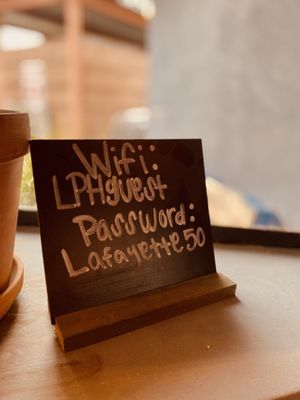 Wifi:
LPHguest
Password:
Lafayette50